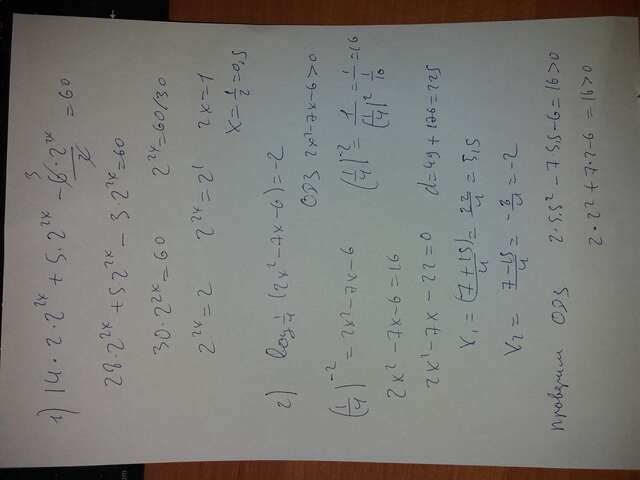 1) 14 · 2 · 2^{2x} + 5 · 2^{2x} - \frac{6 · 2^{2x}}{2} = 60
3
28 · 2^{2x} + 5 2^{2x} - 3 · 2^{2x} = 60
30 · 2^{2x} = 60 2^{2x} = 60/30
2^{2x} = 2 2^{2x} = 2^1 2x = 1
x = \frac{1}{2} = 0,5
2) log_{\frac{1}{4}} (2x² - 7x - 6) = -2
ОДЗ 2x² - 7x - 6 > 0
(\frac{1}{4})^{-2} = 2x² - 7x - 6 (\frac{1}{4})^{-2} = \frac{1}{(\frac{1}{4})^2} = \frac{1}{\frac{1}{16}} = 16
2x² - 7x - 6 = 16
2x² - 7x - 22 = 0 d = 49 + 176 = 225
x₁ = \frac{(7 + 15)}{4} = \frac{22}{4} = 5,5
x₂ = \frac{7 - 15}{4} = -\frac{8}{4} = -2
проверим ОДЗ 2 · 5,5² - 7 · 5,5 - 6 = 16 > 0
2 · 2² + 7 · 2 - 6 = 16 > 0